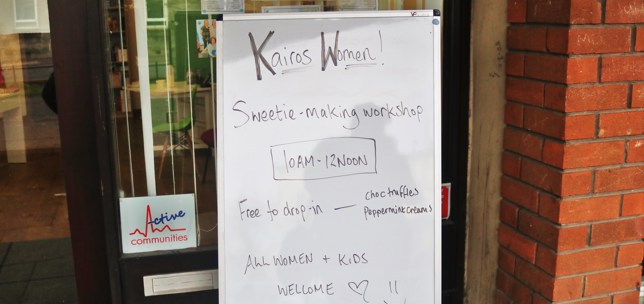 Kairos Women!
Sweetie-making workshop
10AM-12NOON
Free to drop-in — choc truffles
peppermint creams
ALL WOMEN + KIDS
WELCOME ♡ !!
Active
communities